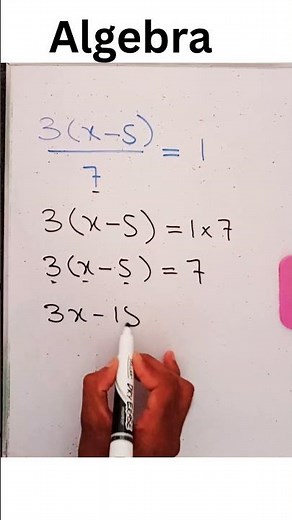 Algebra
3(x-5)/7 = 1
3(x-5) = 1×7
3(x-5) = 7
3x-15